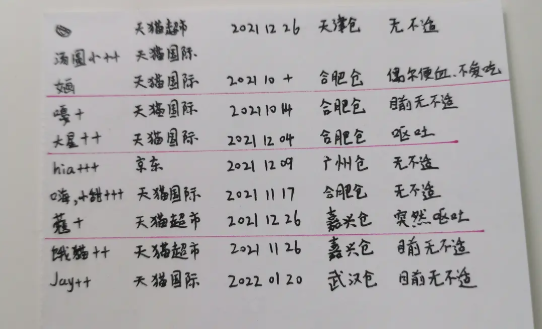 天猫超市 2021 12 26 天津仓 无不适
汤圆小++ 天猫国际
天猫国际 2021 10 + 合肥仓 偶尔便血.不爱吃
嘎+ 天猫国际 2021 10 14 合肥仓 目前无不适
大星++ 天猫国际 2021 12 04 合肥仓 呕吐
hia+++ 京东 2021 12 09 广州仓 无不适
嗨,小甜+++ 天猫国际 2021 11 17 合肥仓 无不适
+ 天猫超市 2021 12 26 嘉兴仓 突然呕吐
饿貓++ 天猫超市 2021 11 26 嘉兴仓 目前无不适
Jay++ 天猫国际 2022 01 20 武汉仓 目前无不适